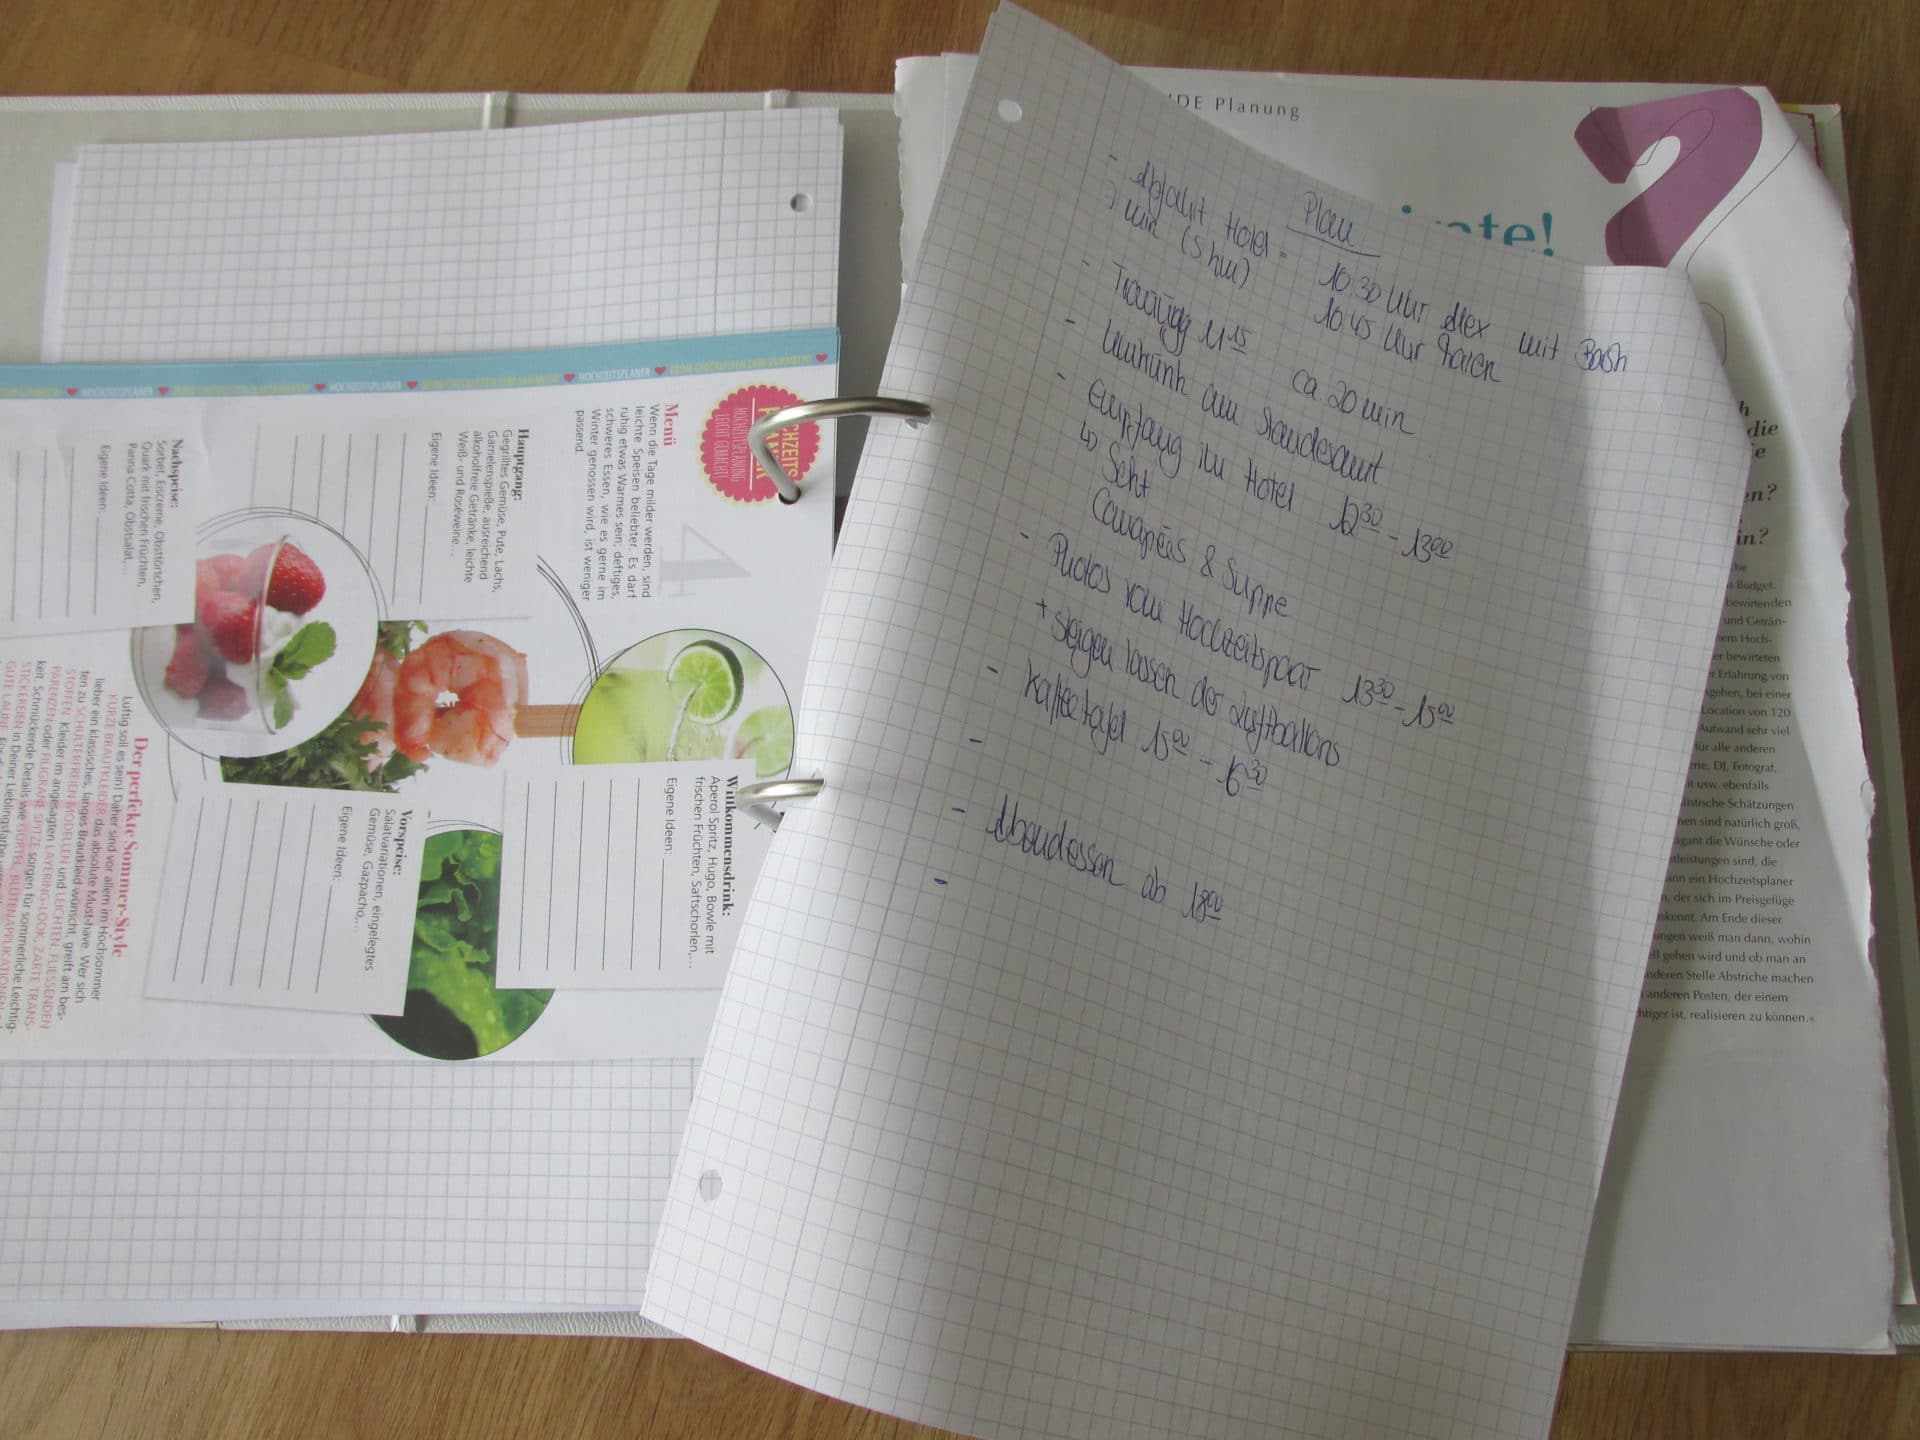 HOCHZEITSPLANER
HOCHZEITSPLANER
HOCHZEITSPLANER
HOCHZEITSPLANUNG
LEICHT GEMACHT
4
Menü
Wenn die Tage milder werden, sind
leichte Speisen beliebter. Es darf
ruhig etwas Warmes sein, deftiges,
schweres Essen, wie es gerne im
Winter genossen wird, ist weniger
passend.
Hauptgang:
Gegrilltes Gemüse, Pute, Lachs,
Garnelenspieße, ausreichend
alkoholfreie Getränke, leichte
Weiß- und Roséweine…
Eigene Ideen:
Nachspeise:
Sorbet, Eiscreme, Obsttörtchen,
Quark mit frischen Früchten,
Panna Cotta, Obstsalat,…
Eigene Ideen:
Willkommensdrink:
Aperol Spritz, Hugo, Bowle mit
frischen Früchten, Saftschorlen,…
Eigene Ideen:
Vorspeise:
Salatvariationen, eingelegtes
Gemüse, Gazpacho,…
Eigene Ideen:
Der perfekte Sommer-Style
Luftig soll es sein! Daher sind vor allem im Hochsommer
KURZE BRAUTKLEIDER das absolute Must-have. Wer sich
lieber ein klassisches, langes Brautkleid wünscht, greift am bes-
ten zu SCHULTERFREIEN MODELLEN und LEICHTEN, FLIESSENDEN
STOFFEN. Kleider im angesagten LAYERING-LOOK, ZARTE TRANS-
PARENZEN oder FILIGRANE SPITZE sorgen für sommerliche Leichtig-
keit. Schmückende Details wie GÜRTEL, BLÜTENAPPLIKATIONEN
STICKEREIEN in Deiner Lieblingsfarbe
GUTE LAUNE.
Plan
- Abfahrt Hotel = 10.30 Uhr Alex mit Bash
min (5 km) 10.45 Uhr
- 11 15 ca 20 min
- Umtrunk am Standesamt
- Empfang im Hotel 12 30 - 13 00
↳ Sekt
Canapées & Suppe
- Photos vom Hochzeitspaar 13 30 - 15 00
+ steigen lassen der Luftballons
- Kaffeetafel 15 00 - 16 30
-
- Abendessen ab 18 00
-
Planung
?
die
en?
in?
Budget.
bewirtenden
und Geträn-
bewirteten
Erfahrung von
gehen, bei einer
Location von 120
Aufwand sehr viel
für alle anderen
DJ, Fotograf,
usw. ebenfalls
listische Schätzungen
sind natürlich groß,
die Wünsche oder
leistungen sind, die
ann ein Hochzeitsplaner
der sich im Preisgefüge
skennt. Am Ende dieser
ungen weiß man dann, wohin
gehen wird und ob man an
nderen Stelle Abstriche machen
anderen Posten, der einem
htiger ist, realisieren zu können.